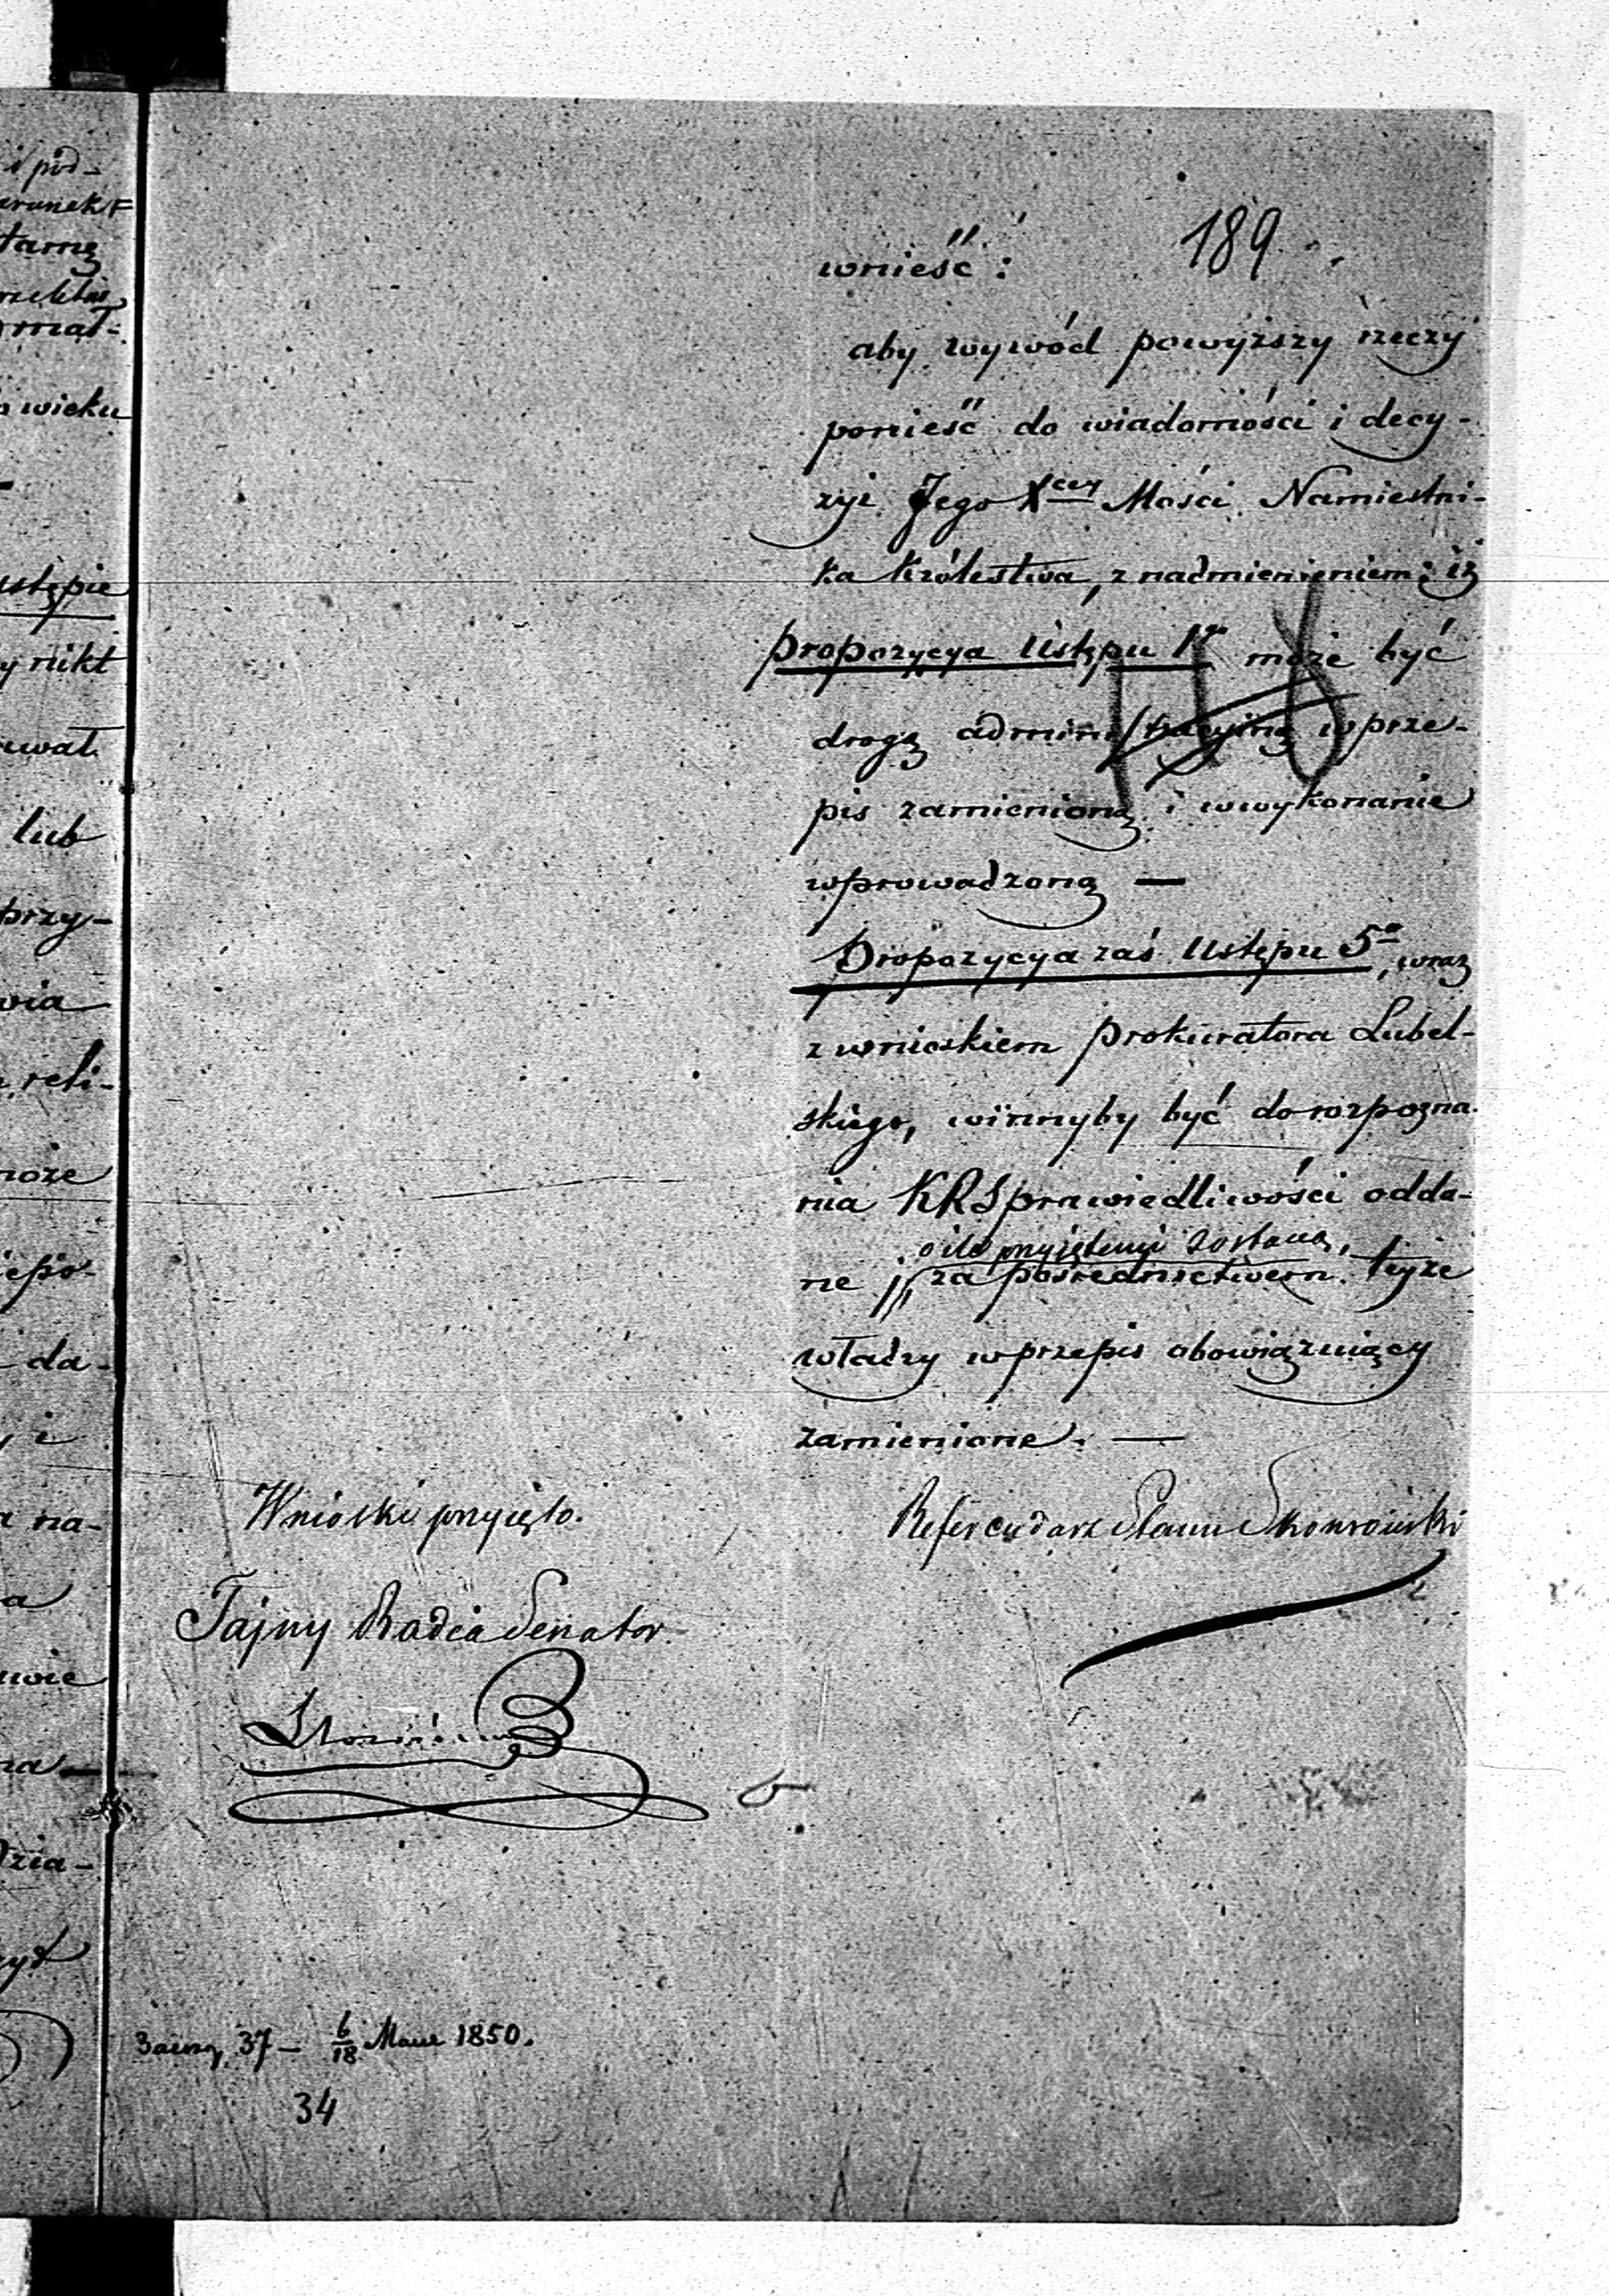 i pod-
tarnę
wieku
ustępie
nikt
lub
przy-
reli-
może
da-
i
na-
a
189
wnieść:
aby wywód powyższy rzeczy
ponieść do wiadomości i decy-
zyi Jego Xcey Mości Namiestni-
ka Królestwa, z nadmienieniem: iż
propozycya Ustępu 1go może być
drogą administracyjną w prze-
pis zamienioną i w wykonanie
wprowadzoną —
Propozycya zaś Ustępu 5o, wraz
z wnioskiem prokuratora Lubel-
skiego, winnyby być do rozpozna-
nia KRSprawiedliwości odda-
o ile przyjętemi zostaną,
ne i za pośrednictwem tejże
władzy w przepis obowiązujący
zamienione. —
Referendarz Skonroiński
Wnioski przyjęto.
Tajny Radca Senator
37 — 6/18 1850.
34